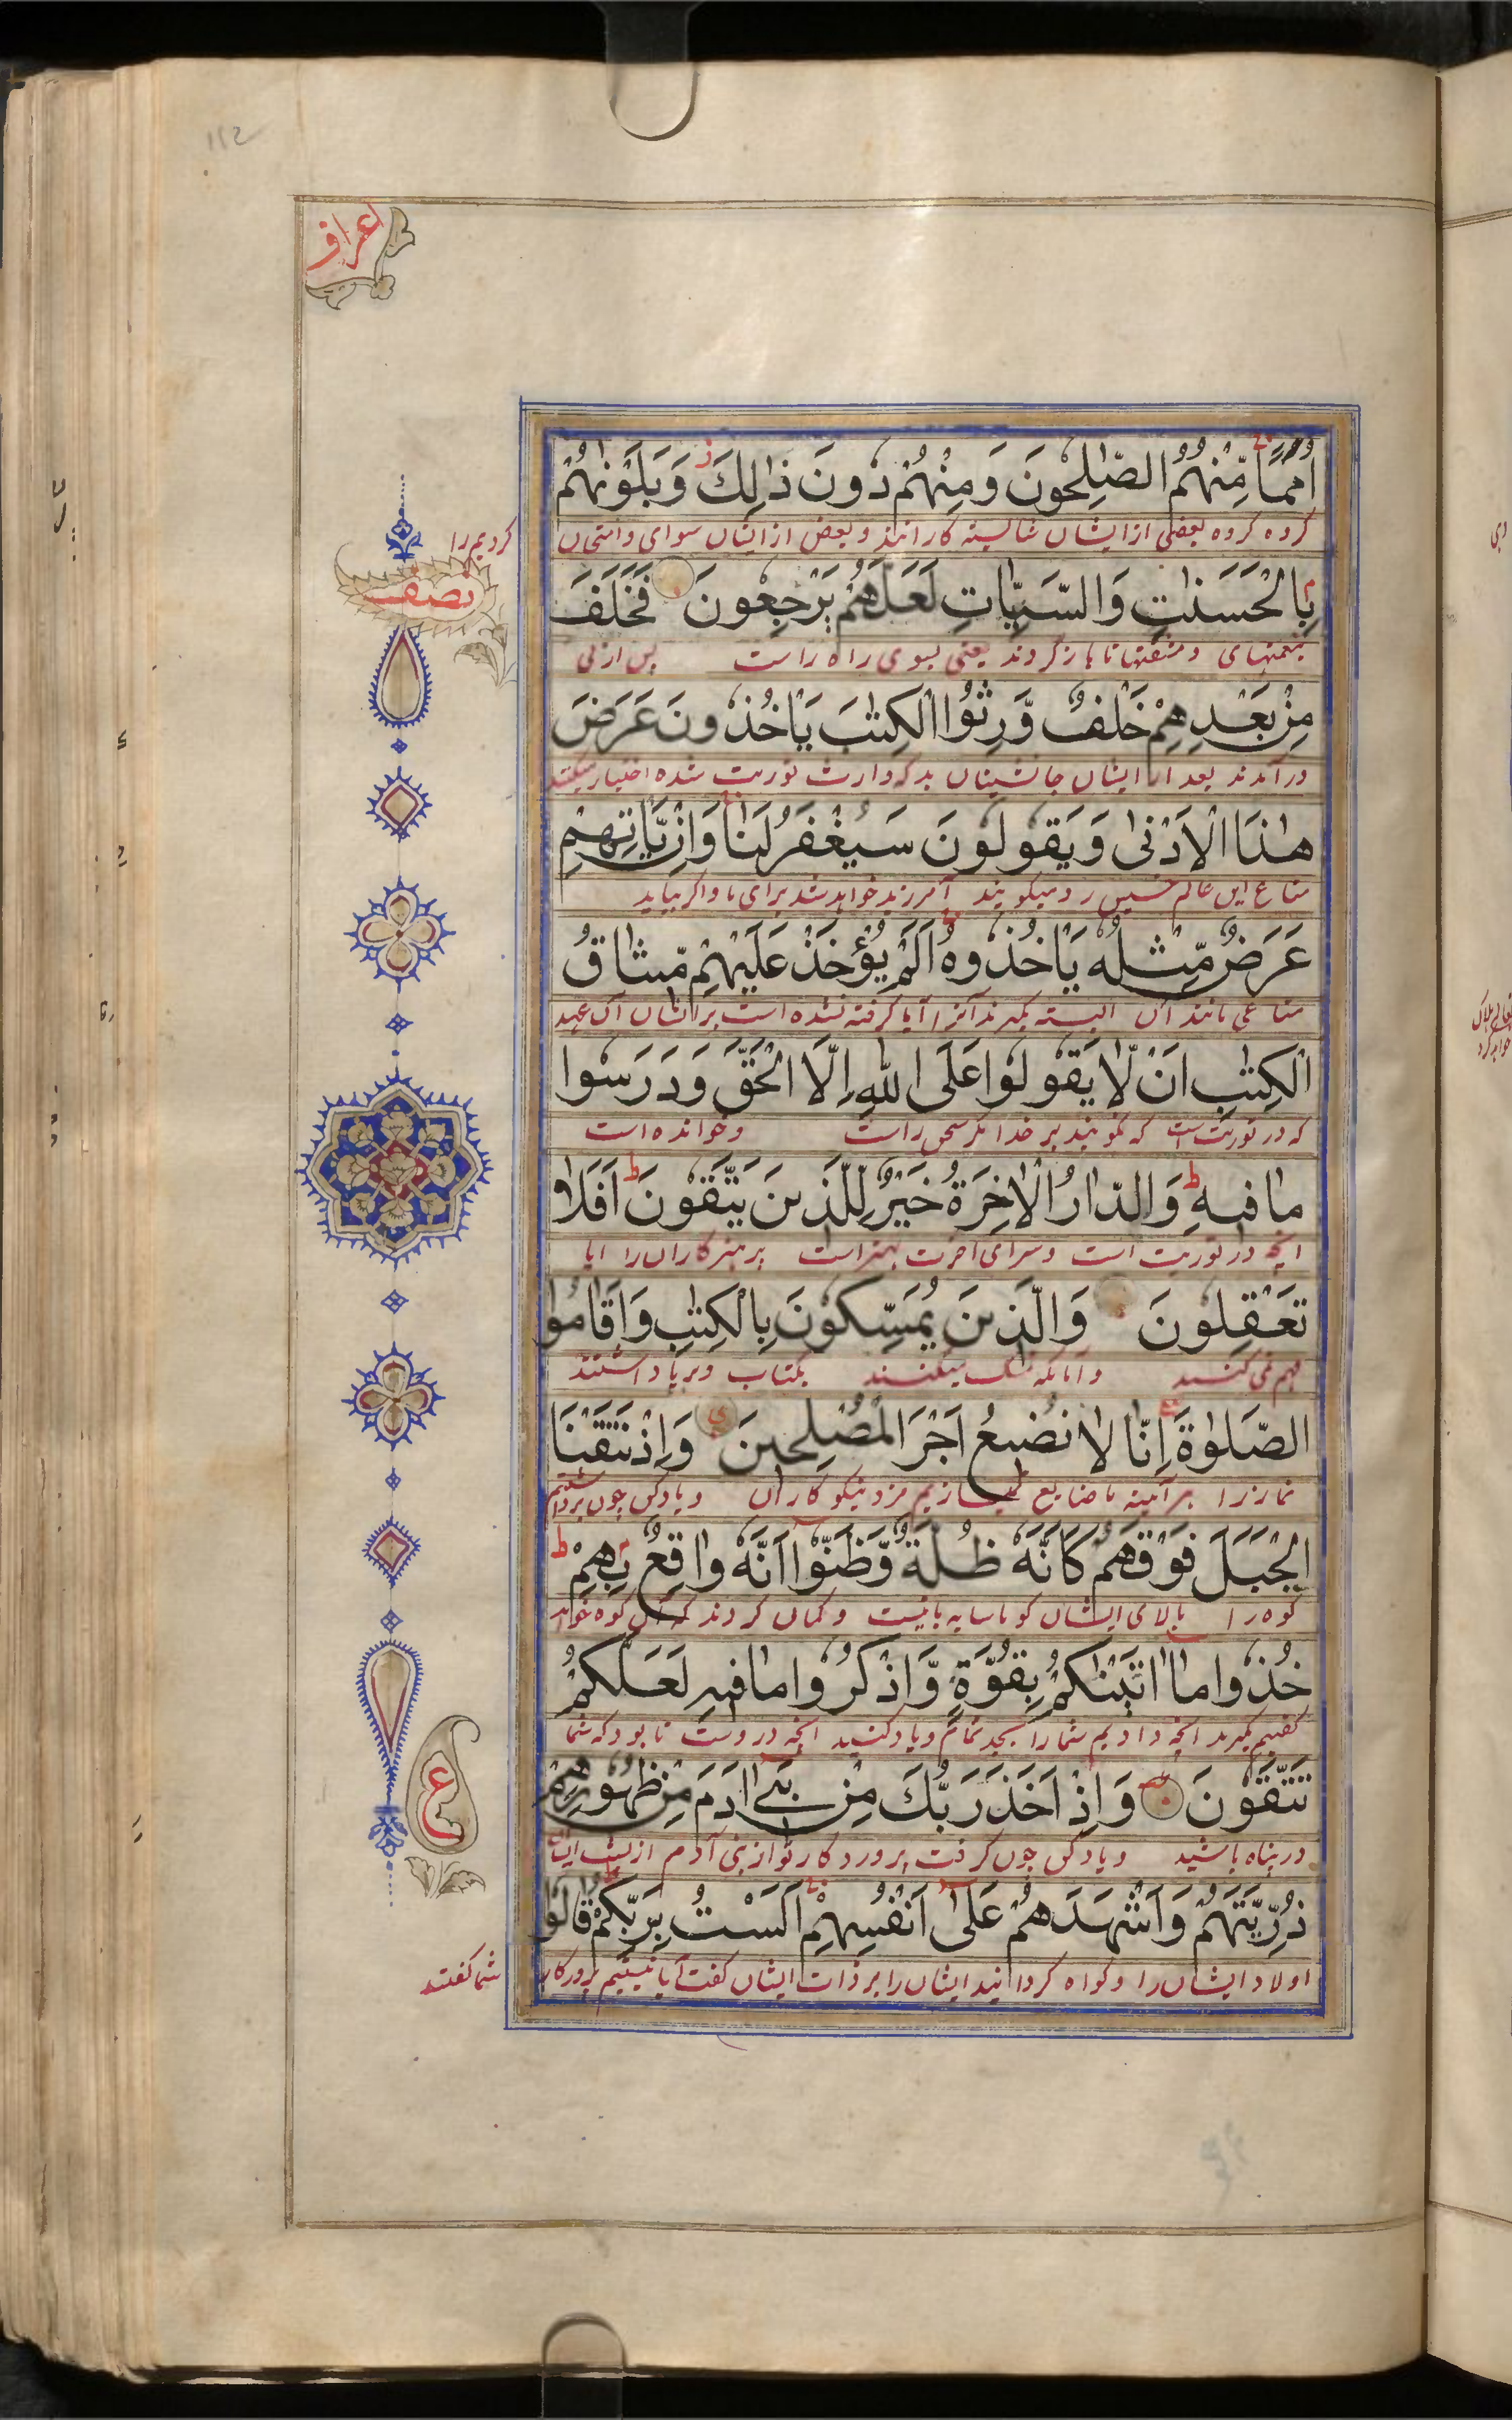 اعراف
اُمَمًا مِّنْهُمُ الصّٰلِحُونَ وَمِنْهُمْ دُونَ ذٰلِكَ وَبَلَوْنٰهُمْ
كروه كروه بعضى از ايشان شايسته كارانند و بعض از ايشان سواى و امتحان
كرديم را
نصف
بِالْحَسَنٰتِ وَالسَّيِّاٰتِ لَعَلَّهُمْ يَرْجِعُونَ فَخَلَفَ
بنعمتهاى و مشقتها تا باز كردند يعنى بسوى راه راست پس از پى
مِنْ بَعْدِهِمْ خَلْفٌ وَّرِثُوا الْكِتٰبَ يَاْخُذُونَ عَرَضَ
در آمدند بعد از ايشان جانشينان بد كه وارث توريت شده اختيار ميكنند
هٰذَا الْاَدْنٰى وَيَقُولُونَ سَيُغْفَرُ لَنَا وَاِنْ يَّاْتِهِمْ
متاع اين عالم خسيس را و ميكويند آمرزيده خواهد شد براى ما و اكر بيايد
عَرَضٌ مِّثْلُهٗ يَاْخُذُوهُ اَلَمْ يُؤْخَذْ عَلَيْهِمْ مِّيثَاقُ
متاعى مانند آن البته بكيرند آنرا آيا كرفته نشده است بر ايشان آن عهد
الْكِتٰبِ اَنْ لَّا يَقُولُوا عَلَى اللّٰهِ اِلَّا الْحَقَّ وَدَرَسُوا
كه در توريت است كه نكويند بر خدا مكر سخن راست و خوانده است
مَا فِيهِ وَالدَّارُ الْاٰخِرَةُ خَيْرٌ لِّلَّذِينَ يَتَّقُونَ اَفَلَا
انچه در توريت است و سراى آخرت بهتر است پرهيزكاران را ايا
تَعْقِلُونَ وَالَّذِينَ يُمَسِّكُونَ بِالْكِتٰبِ وَاَقَامُوا
فهم نمى كنند و آنانكه تمسك ميكنند بكتاب و برپا داشتند
الصَّلٰوةَ اِنَّا لَا نُضِيعُ اَجْرَ الْمُصْلِحِينَ وَاِذْ نَتَقْنَا
نماز را هر آيينه ما ضايع نميسازيم مزد نيكوكاران و ياد كن چون برداشتيم
الْجَبَلَ فَوْقَهُمْ كَاَنَّهٗ ظُلَّةٌ وَّظَنُّوا اَنَّهٗ وَاقِعٌ بِهِمْ
كوه را بالاى ايشان كويا سايه بانيست و كمان كردند كه آن كوه خواهد
خُذُوا مَا اٰتَيْنٰكُمْ بِقُوَّةٍ وَّاذْكُرُوا مَا فِيهِ لَعَلَّكُمْ
كفتيم بكيريد انچه داديم شما را بجد تمام و ياد كنيد انچه در وست تا بود كه شما
ع
تَتَّقُونَ وَاِذْ اَخَذَ رَبُّكَ مِنْ بَنِي اٰدَمَ مِنْ ظُهُورِهِمْ
در پناه باشيد و ياد كن چون كرفت پروردكار تو از بنى آدم از پشت ايشان
ذُرِّيَّتَهُمْ وَاَشْهَدَهُمْ عَلٰى اَنْفُسِهِمْ اَلَسْتُ بِرَبِّكُمْ قَالُوا
اولاد ايشان را و كواه كردانيد ايشان را بر ذات ايشان كفت آيا نيستيم پروردكار
شما كفتند